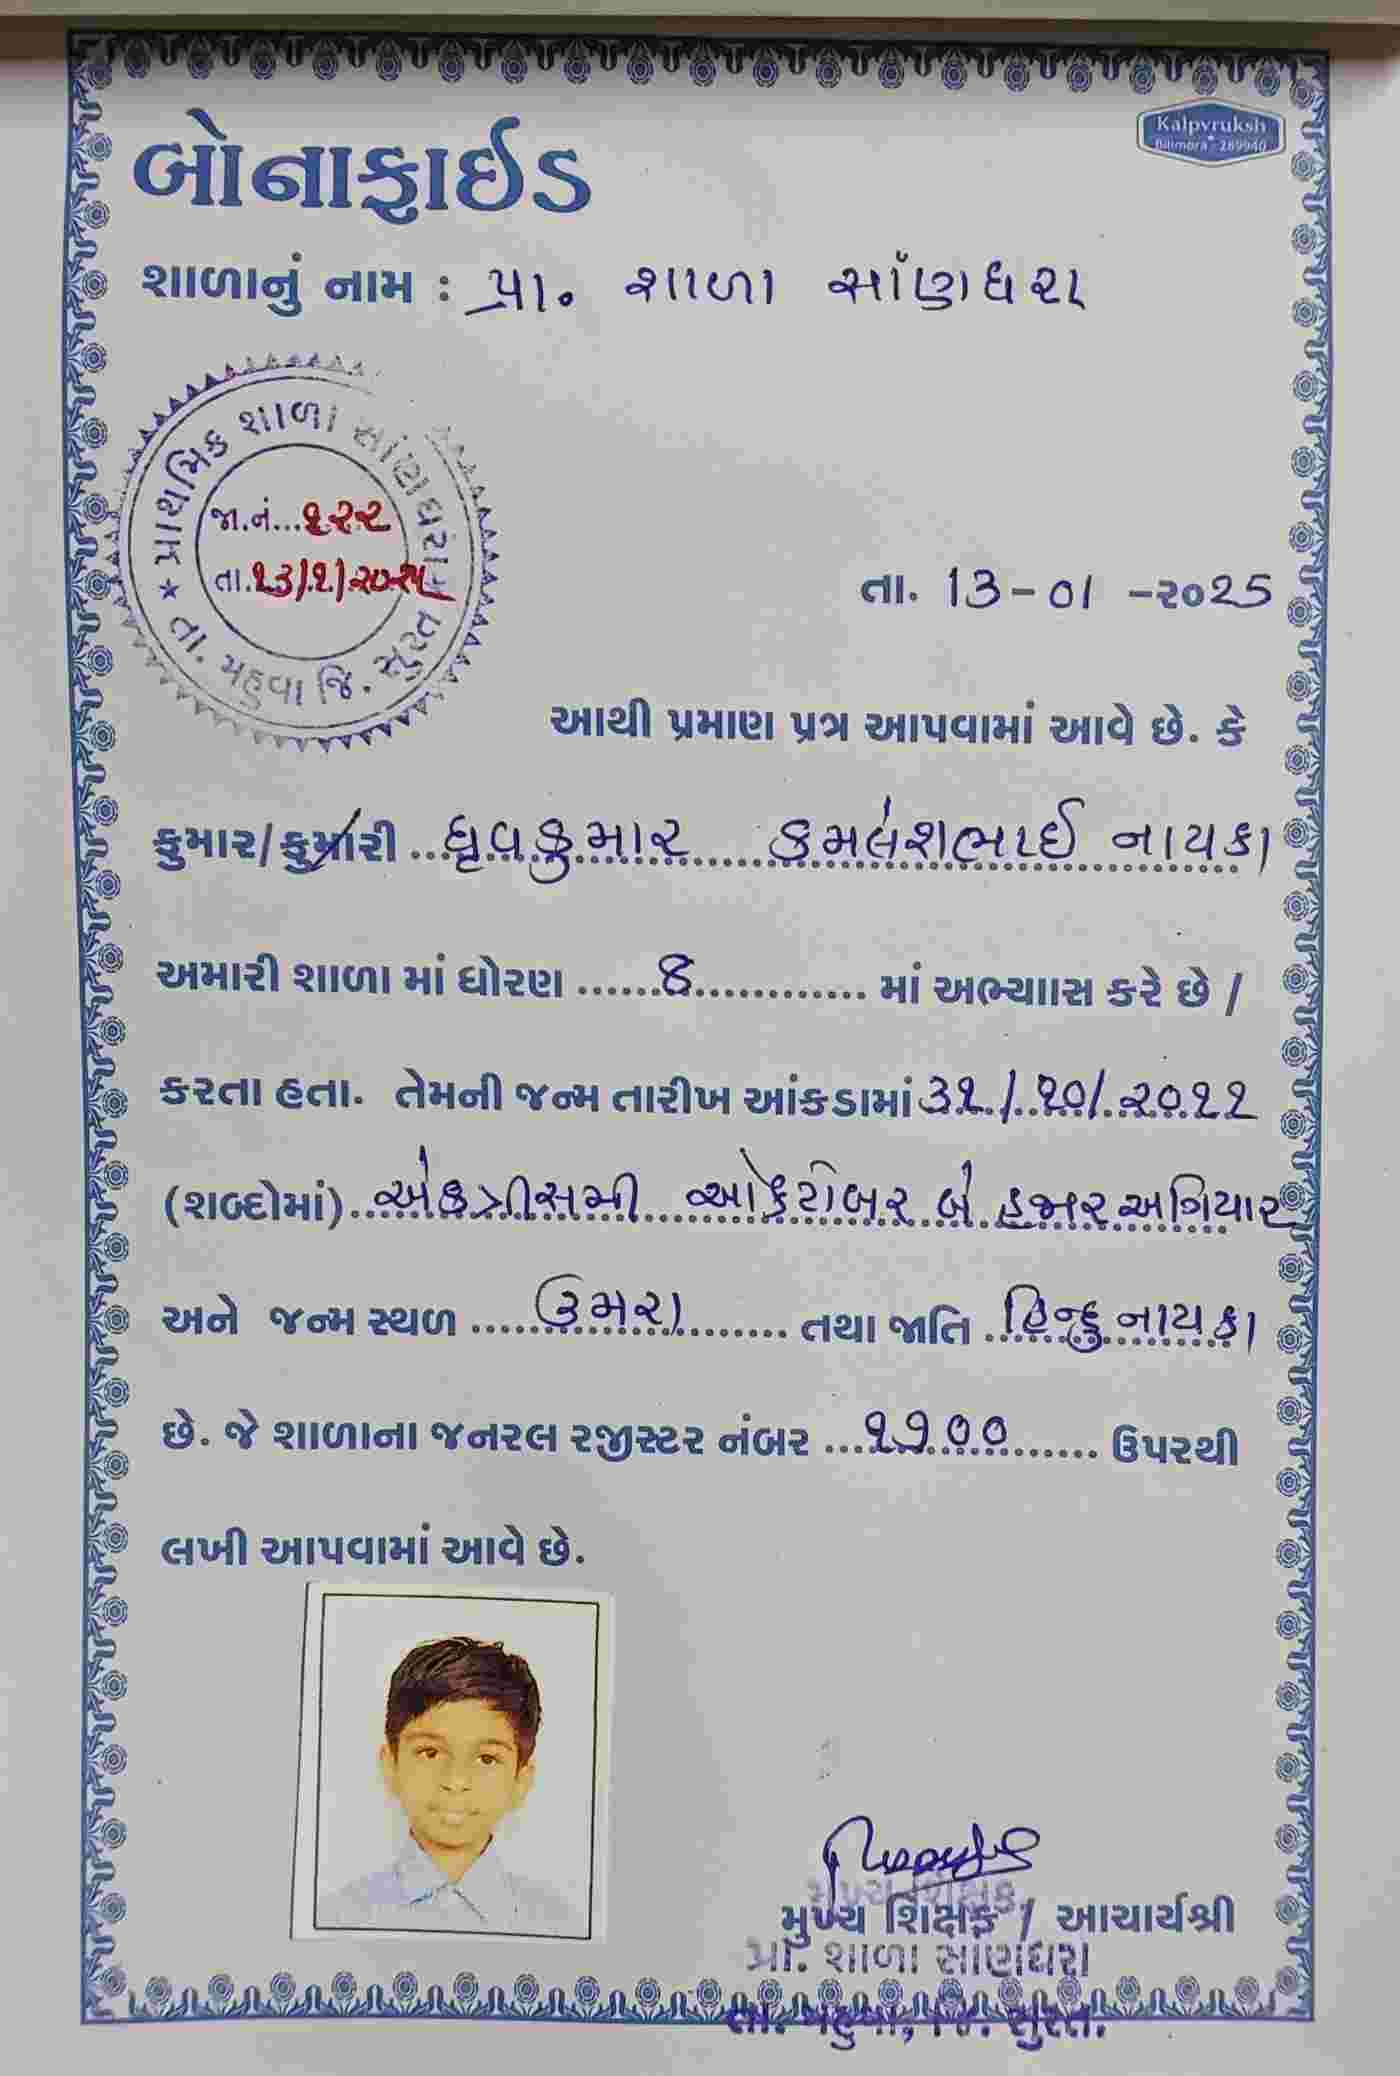 Kalpvruksh
Bilimora - 289940
બોનાફાઈડ
શાળાનું નામ : પ્રા. શાળા સાંણધરા
પ્રાથમિક શાળા સાંણધરા
જા.નં...૧૨૨
તા.૧૩/૧/૨૦૨૫
★ તા. મહુવા જિ. સુરત
તા. 13-01 -૨૦25
આથી પ્રમાણ પત્ર આપવામાં આવે છે. કે
કુમાર/કુમારી ...ધ્રુવકુમાર કમલેશભાઈ નાયકા
અમારી શાળા માં ધોરણ ......૪............ માં અભ્યાાસ કરે છે /
કરતા હતા. તેમની જન્મ તારીખ આંકડામાં ૩૧/૧૦/૨૦૧૧
(શબ્દોમાં) એકત્રીસમી ઓક્ટોબર બે હજાર અગિયાર
અને જન્મ સ્થળ ....ઉમરા....... તથા જાતિ ..હિન્દુ નાયકા
છે. જે શાળાના જનરલ રજીસ્ટર નંબર ...૧૧૦૦...... ઉપરથી
લખી આપવામાં આવે છે.
મુખ્ય શિક્ષક
મુખ્ય શિક્ષક / આચાર્યશ્રી
પ્રા. શાળા સાણધરા
તા. મહુવા, જિ. સુરત.